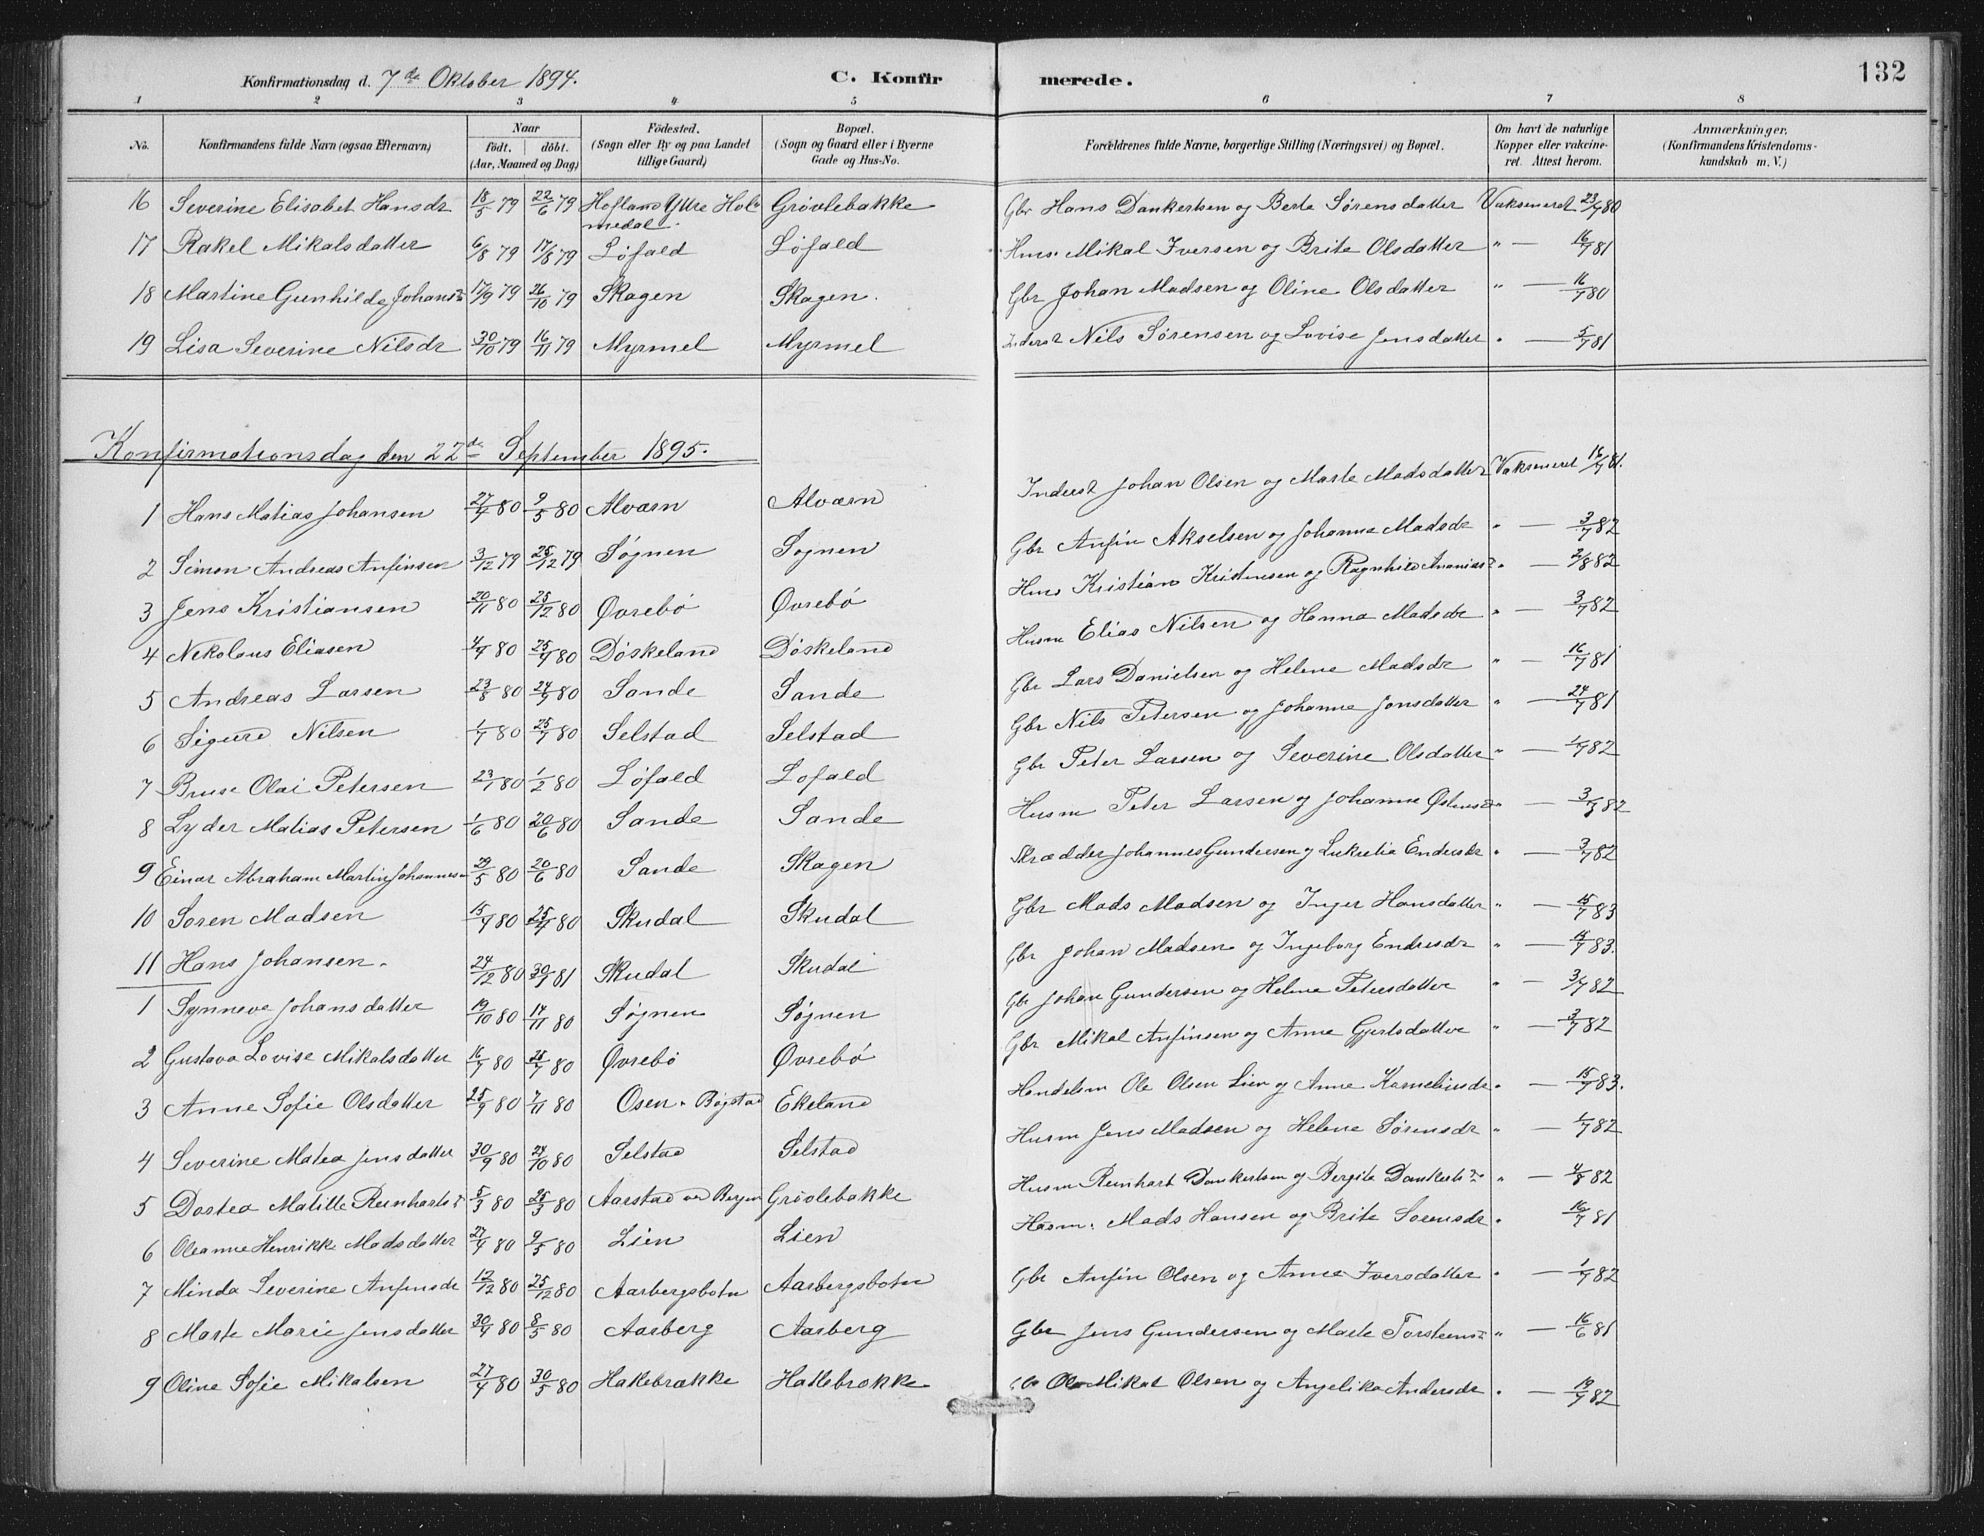 Konfirmationsdag d. 7de Oktober 1894. C. Konfirmerede. 132
1 2 3 4 5 6 7 8
No. Konfirmandens fulde Navn (ogsaa Efternavn) Naar födt. döbt. (Aar, Maaned og Dag) Födested. (Sogn eller By og paa Landet tillige Gaard) Bopæl. (Sogn og Gaard eller i Byerne Gade og Hus-No. Forældrenes fulde Navne, borgerlige Stilling (Næringsvei) og Bopæl. Om havt de naturlige Kopper eller vakcineret. Attest herom. Anmærkninger. (Konfirmandens Kristendomskundskab m. V.)
16 Severine Elisabet Hansdr 18/5 79 22/6 79 Hofland Yttre Holmedal. Grövlebakke Gbr Hans Dankertsen og Berte Sørensdatter Vaksineret 23/7 80
17 Rakel Mikalsdatter 6/8 79 17/8 79 Løfald Løfald Hms. Mikal Iversen og Brite Olsdatter " — 16/7 81
18 Martine Gunhilde Johansdr 17/9 79 26/10 79 Skagen Skagen. Gbr Johan Madsen og Oline Olsdatter " — 16/7 80
19 Lisa Severine Nilsdr 30/10 79 16/11 79 Myrmel Myrmel Inderst Nils Sørensen og Lovise Jensdatter " — 5/7 81
Konfirmationsdag den 22de September 1895.
1 Hans Matias Johansen 27/4 80 9/5 80 Alværn Alværn Inderst Johan Olsen og Marte Madsdatter Vaksineret 16/7 81.
2 Simon Andreas Anfinsen 3/12 79 25/12 79 Søgnen Sognen Gbr Anfin Akselsen og Johanna Madsdr " — 3/7 82
3 Jens Kristiansen 20/11 80 25/12 80 Øvrebö Øvrebö Hms Kristian Kristensen og Ragnhild Ananiasdr " — 2/8 82
4 Nikolaus Eliasen 4/4 80 25/4 80 Döskeland Döskeland Husm Elias Nilsen og Hanna Madsdr " — 3/7 82
5 Andreas Larsen 23/8 80 24/9 80 Sande Sande Gbr Lars Danielsen og Helene Madsdr " — 16/7 81
6 Sigurd Nilsen 1/7 80 25/7 80 Selstad Selstad Gbr Nils Petersen og Johanne Jonsdatter " — 24/7 81
7 Bruse Olai Petersen 23/1 80 1/2 80 Löfald Lofald Gbr Peter Larsen og Severine Olsdatter " — 1/7 82
8 Lyder Matias Petersen 1/6 80 20/6 80 Sande Sande Husm Peter Larsen og Johanne Østensdr " — 3/7 82
9 Einar Abraham Martin Johannesen 29/5 80 20/6 80 Sande Skagen Skrædder Johannes Gundersen og Lukretia Endersdr " — 3/7 82
10 Soren Madsen 15/4 80 25/4 80 Skudal Skudal Gbr Mads Madsen og Inger Hansdatter " — 15/7 83
11 Hans Johansen. 24/12 80 30/1 81 Skudal Skudal Gbr Johan Madsen og Ingeborg Endresdr " — 15/7 83.
1 Synneve Johansdatter 19/10 80 14/11 80 Søgnen Søgnen Gbr Johan Gundersen og Helene Petersdatter " — 3/7 82
2 Gustava Lovise Mikalsdatter 16/7 80 25/7 80 Øvrebö Øvrebö Gbr Mikal Anfinsen og Anne Gjertsdatter " — 3/7 82
3 Anne Sofie Olsdatter 25/9 80 7/11 80 Osen. Bøgstad Ekeland Handelsm Ole Olsen Lien og Anne Karneliusdr " — 15/7 83.
4 Severine Matea Jensdatter 30/9 80 24/10 80 Selstad Selstad Husm Jens Madsen og Helene Sørensdr " — 1/7 82
5 Dortea Matille Reinhartsdr 5/3 80 25/3 80 Aarstad ved Bergen Grövlebakke Husm Reinhart Dankertsen og Bergite Dankertsdr " — 4/8 82
6 Oleanne Henrikke Madsdatter 27/4 80 9/5 80 Lien Lien Husm. Mads Hansen og Brite Sorensdr " 16/7 81
7 Minda Severine Anfinsdr 12/12 80 25/12 80 Aarbergsbotn Aarbergsbotn Gbr Anfin Olsen og Anna Iversdatter " — 1/7 82
8 Marte Marie Jensdatter 30/4 80 8/5 80 Aarberg Aarberg Gbr Jens Gundersen og Marte Torsteinsdr " — 16/6 81
9 Oline Sofie Mikalsen 27/4 80 30/5 80 Hallebrække Hallebrække Ole Mikal Olsen og Angelika Andersdr " — 19/7 82